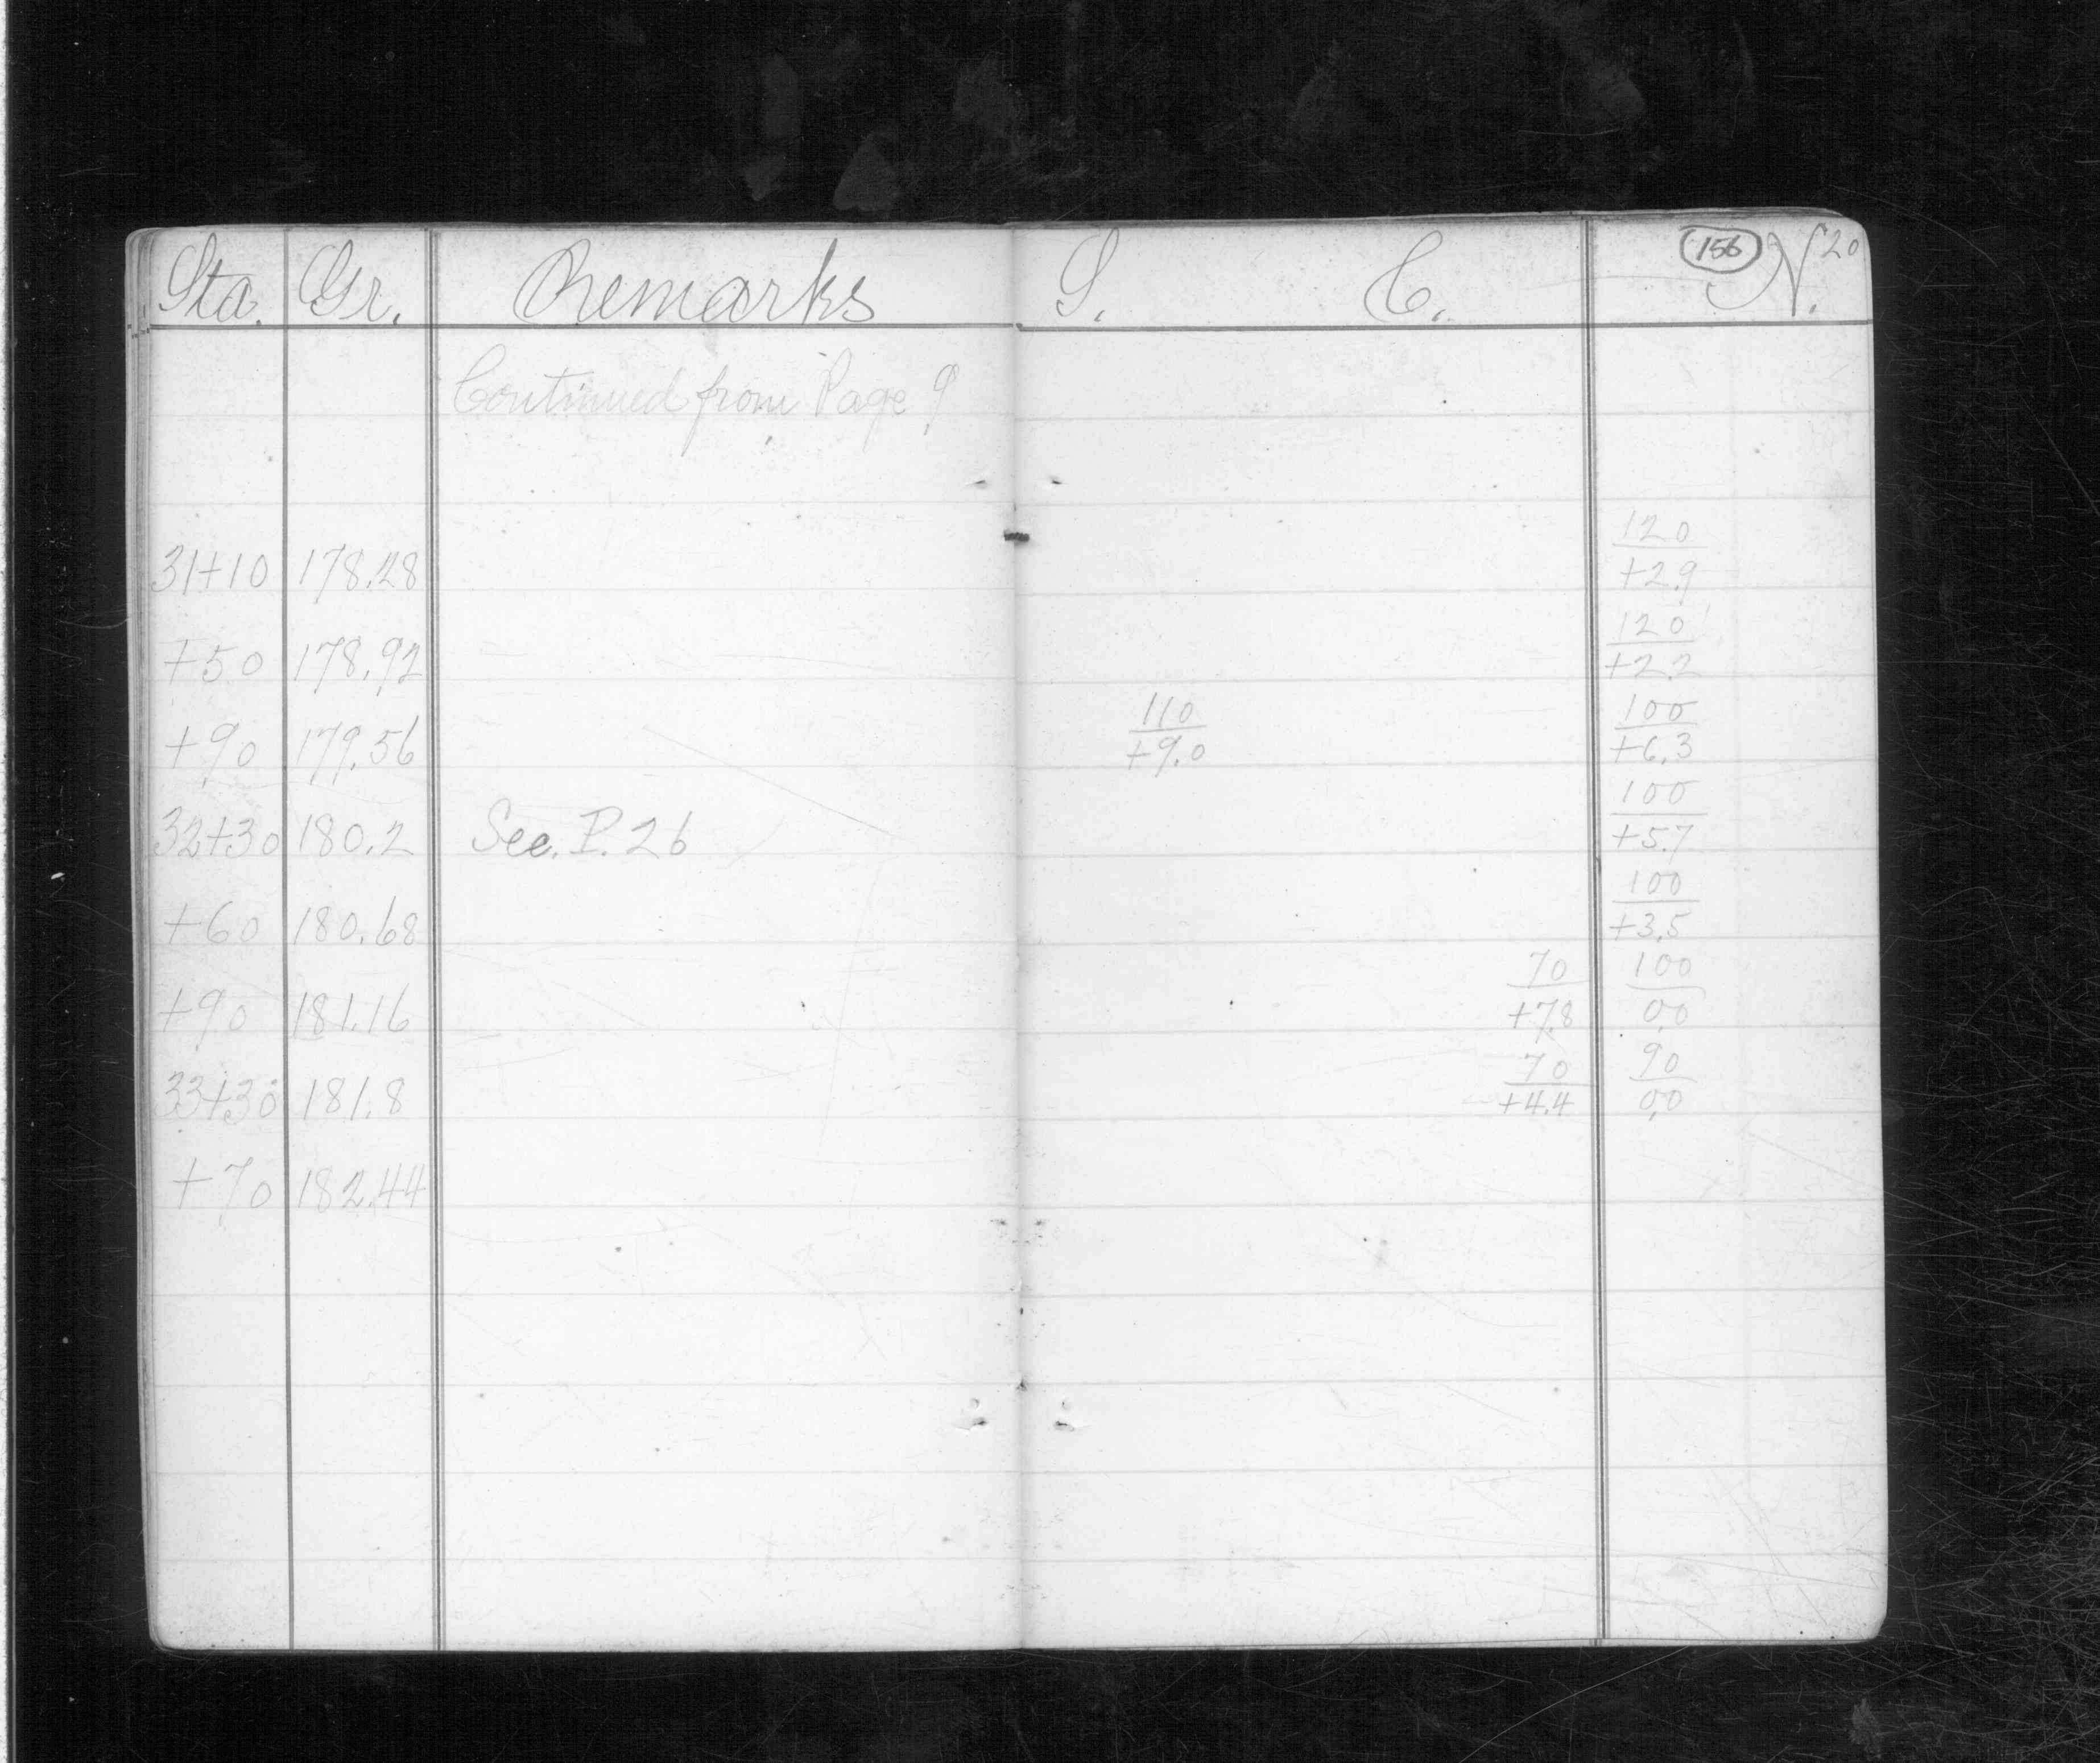 156 20
Sta. Gr. Remarks S. C. N.
Continued from Page 9
120
31+10 178.28 +2.9
120
+50 178.92 +2.2
110 100
+90 179.56 +9.0 +6.3
100
32+30 180.2 See. P. 26 +5.7
100
+60 180.68 +3.5
70 100
+90 181.16 +7.8 0.0
70 90
33+30 181.8 +4.4 0.0
+70 182.44